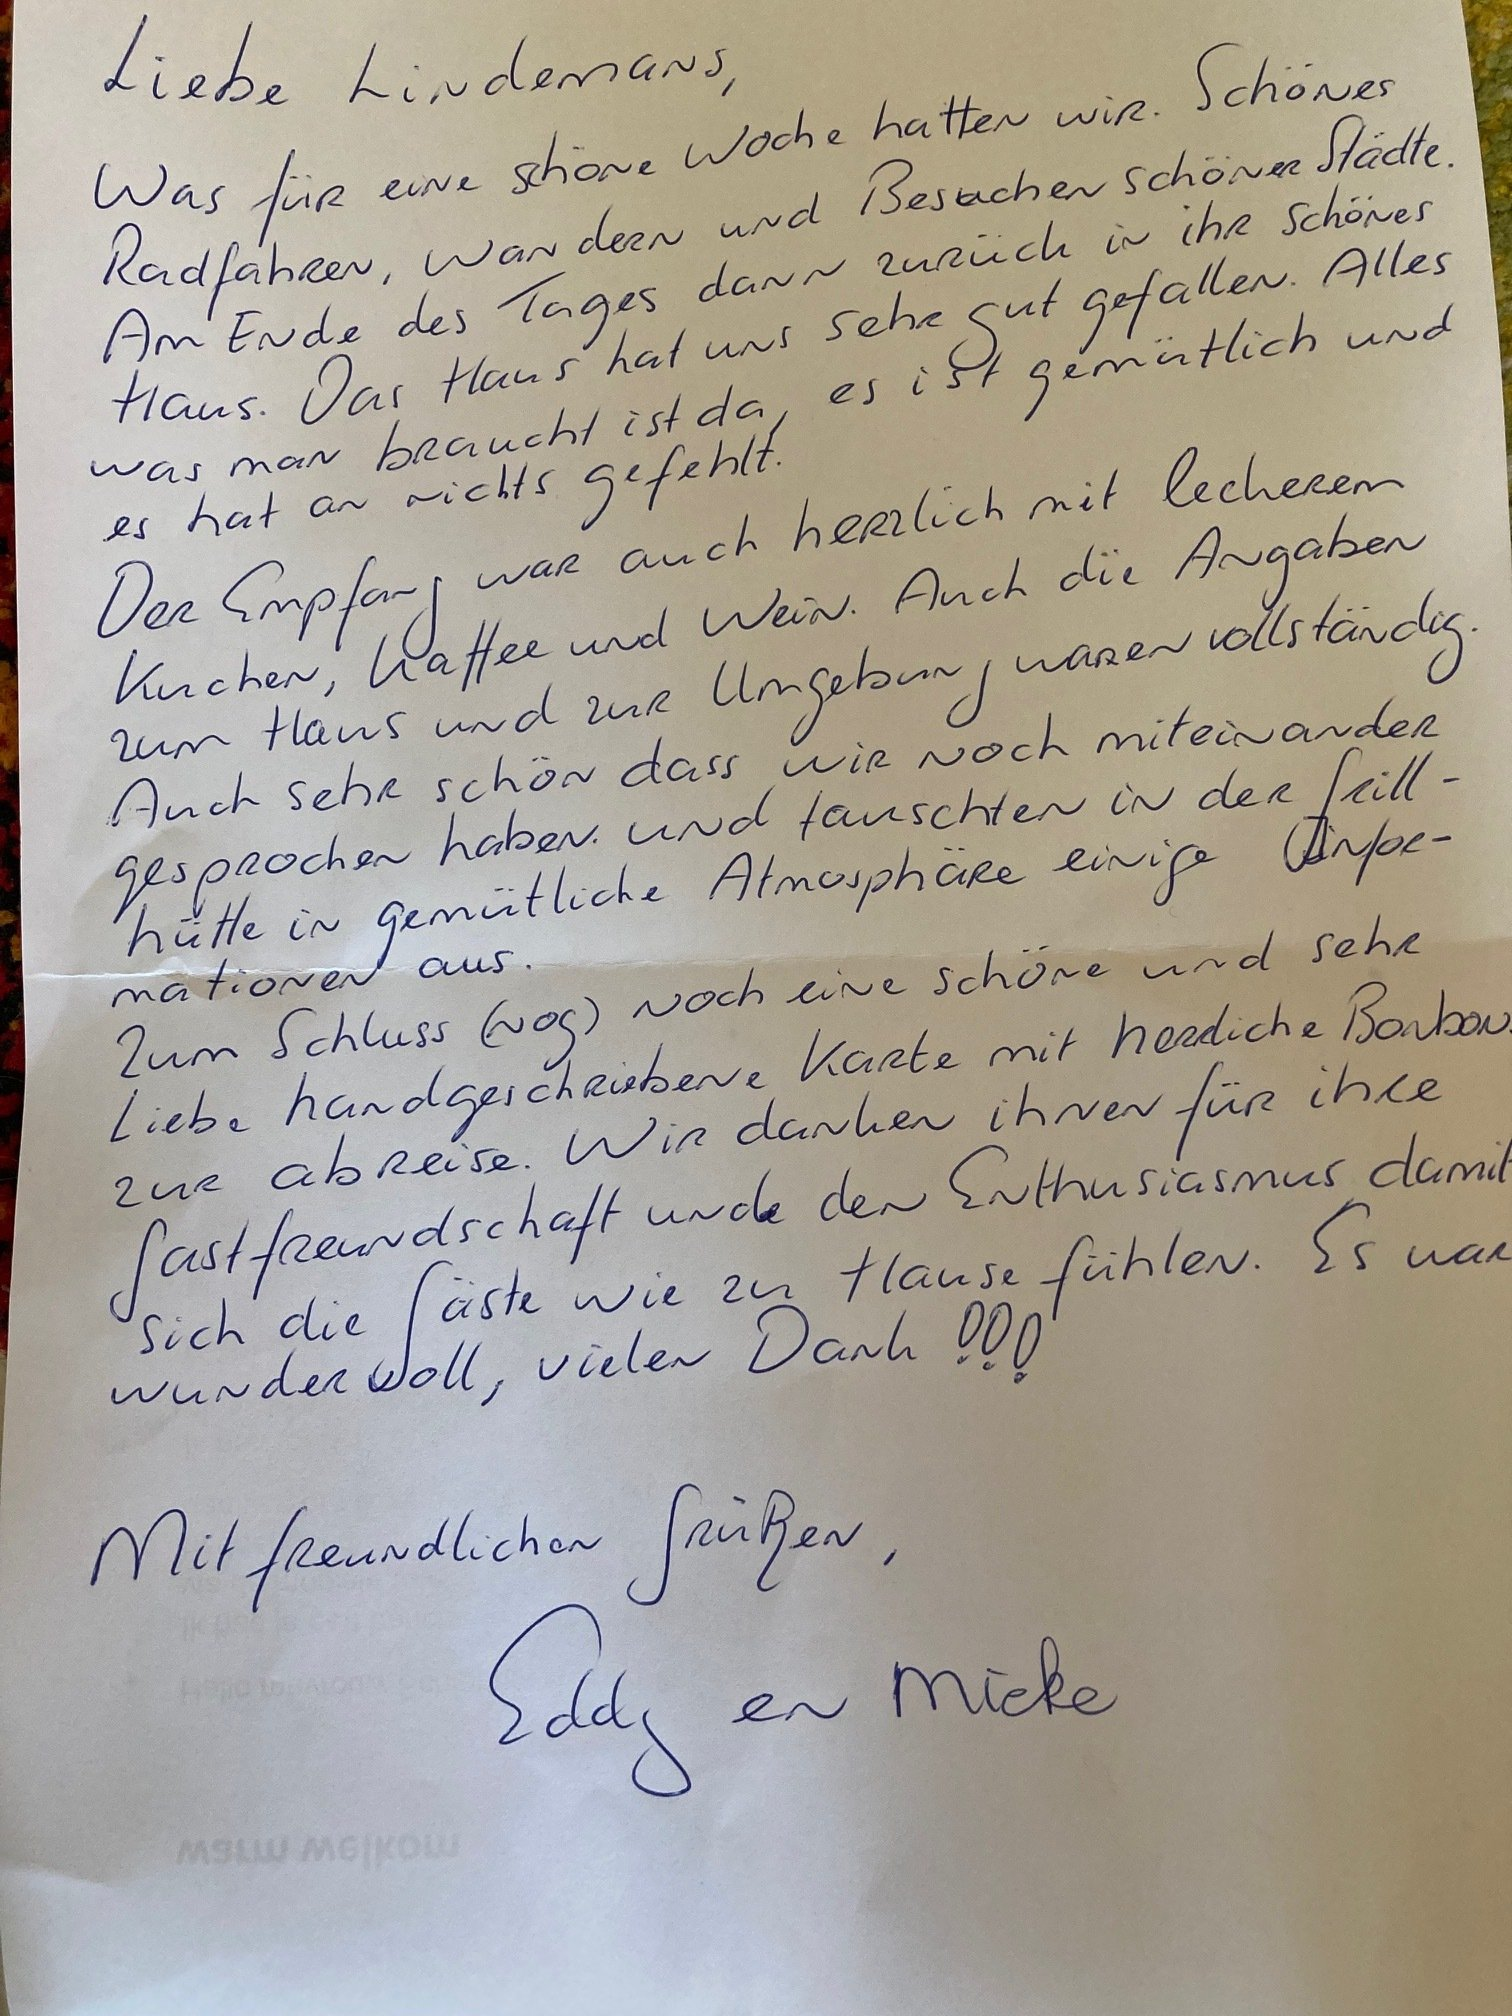 Liebe Lindemans,
Was für eine schöne Woche hatten wir. Schönes
Radfahren, Wandern und Besuchen schöner Städte.
Am Ende des Tages dann zurück in ihr schönes
Haus. Das Haus hat uns sehr gut gefallen. Alles
was man braucht ist da, es ist gemütlich und
es hat an nichts gefehlt.
Der Empfang war auch herzlich mit leckerem
Kuchen, Kaffee und Wein. Auch die Angaben
zum Haus und zur Umgebung waren vollständig.
Auch sehr schön dass wir noch miteinander
gesprochen haben. und tauschten in der Grill-
hütte in gemütliche Atmosphäre einige Infor-
mationen aus.
Zum Schluss (nog) noch eine schöne und sehr
Liebe handgeschriebene Karte mit herzliche Bonbons
zur abreise. Wir danken ihnen für ihre
Gastfreundschaft und den Enthusiasmus damit
sich die Gäste wie zu Hause fühlen. Es war
wundervoll, vielen Dank !!!
Mit freundlichen Grüßen,
Eddy en Mieke
warm welkom